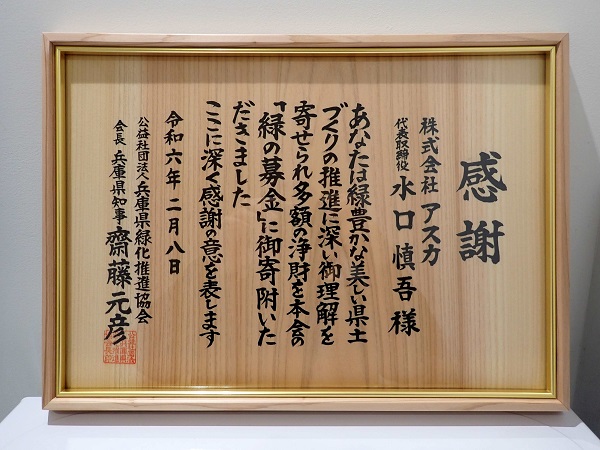 感謝
株式会社 アスカ
代表取締役 水口慎吾 様
あなたは緑豊かな美しい県土
づくりの推進に深い御理解を
寄せられ多額の浄財を本会の
「緑の募金」に御寄附いた
だきました
ここに深く感謝の意を表します
令和六年二月八日
公益社団法人兵庫県緑化推進協会
会長 兵庫県知事 齋藤元彦